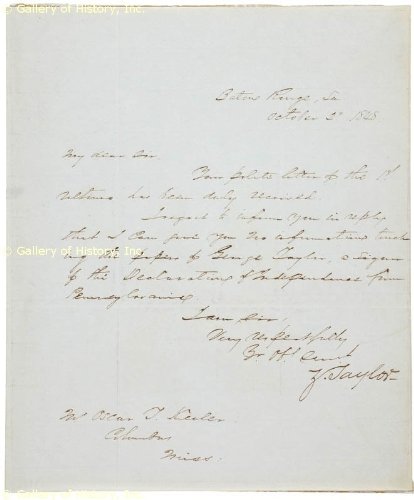 © Gallery of History, Inc.
Baton Rouge, La
October 2d 1848
My dear Sir.
Your polite letter of the 1st
ultimo has been duly received.
I regret to inform you in reply
that I can give you no information
of the papers of George Taylor, a signer
© Gallery of History, Inc.
of the Declaration of Independence from
Pennsylvania
I am Sir,
Very respectfully
Yr. Obt. Servt
Z. Taylor
Mr Oscar T. Keeler
Columbus
Miss:
© Gallery of History, Inc.